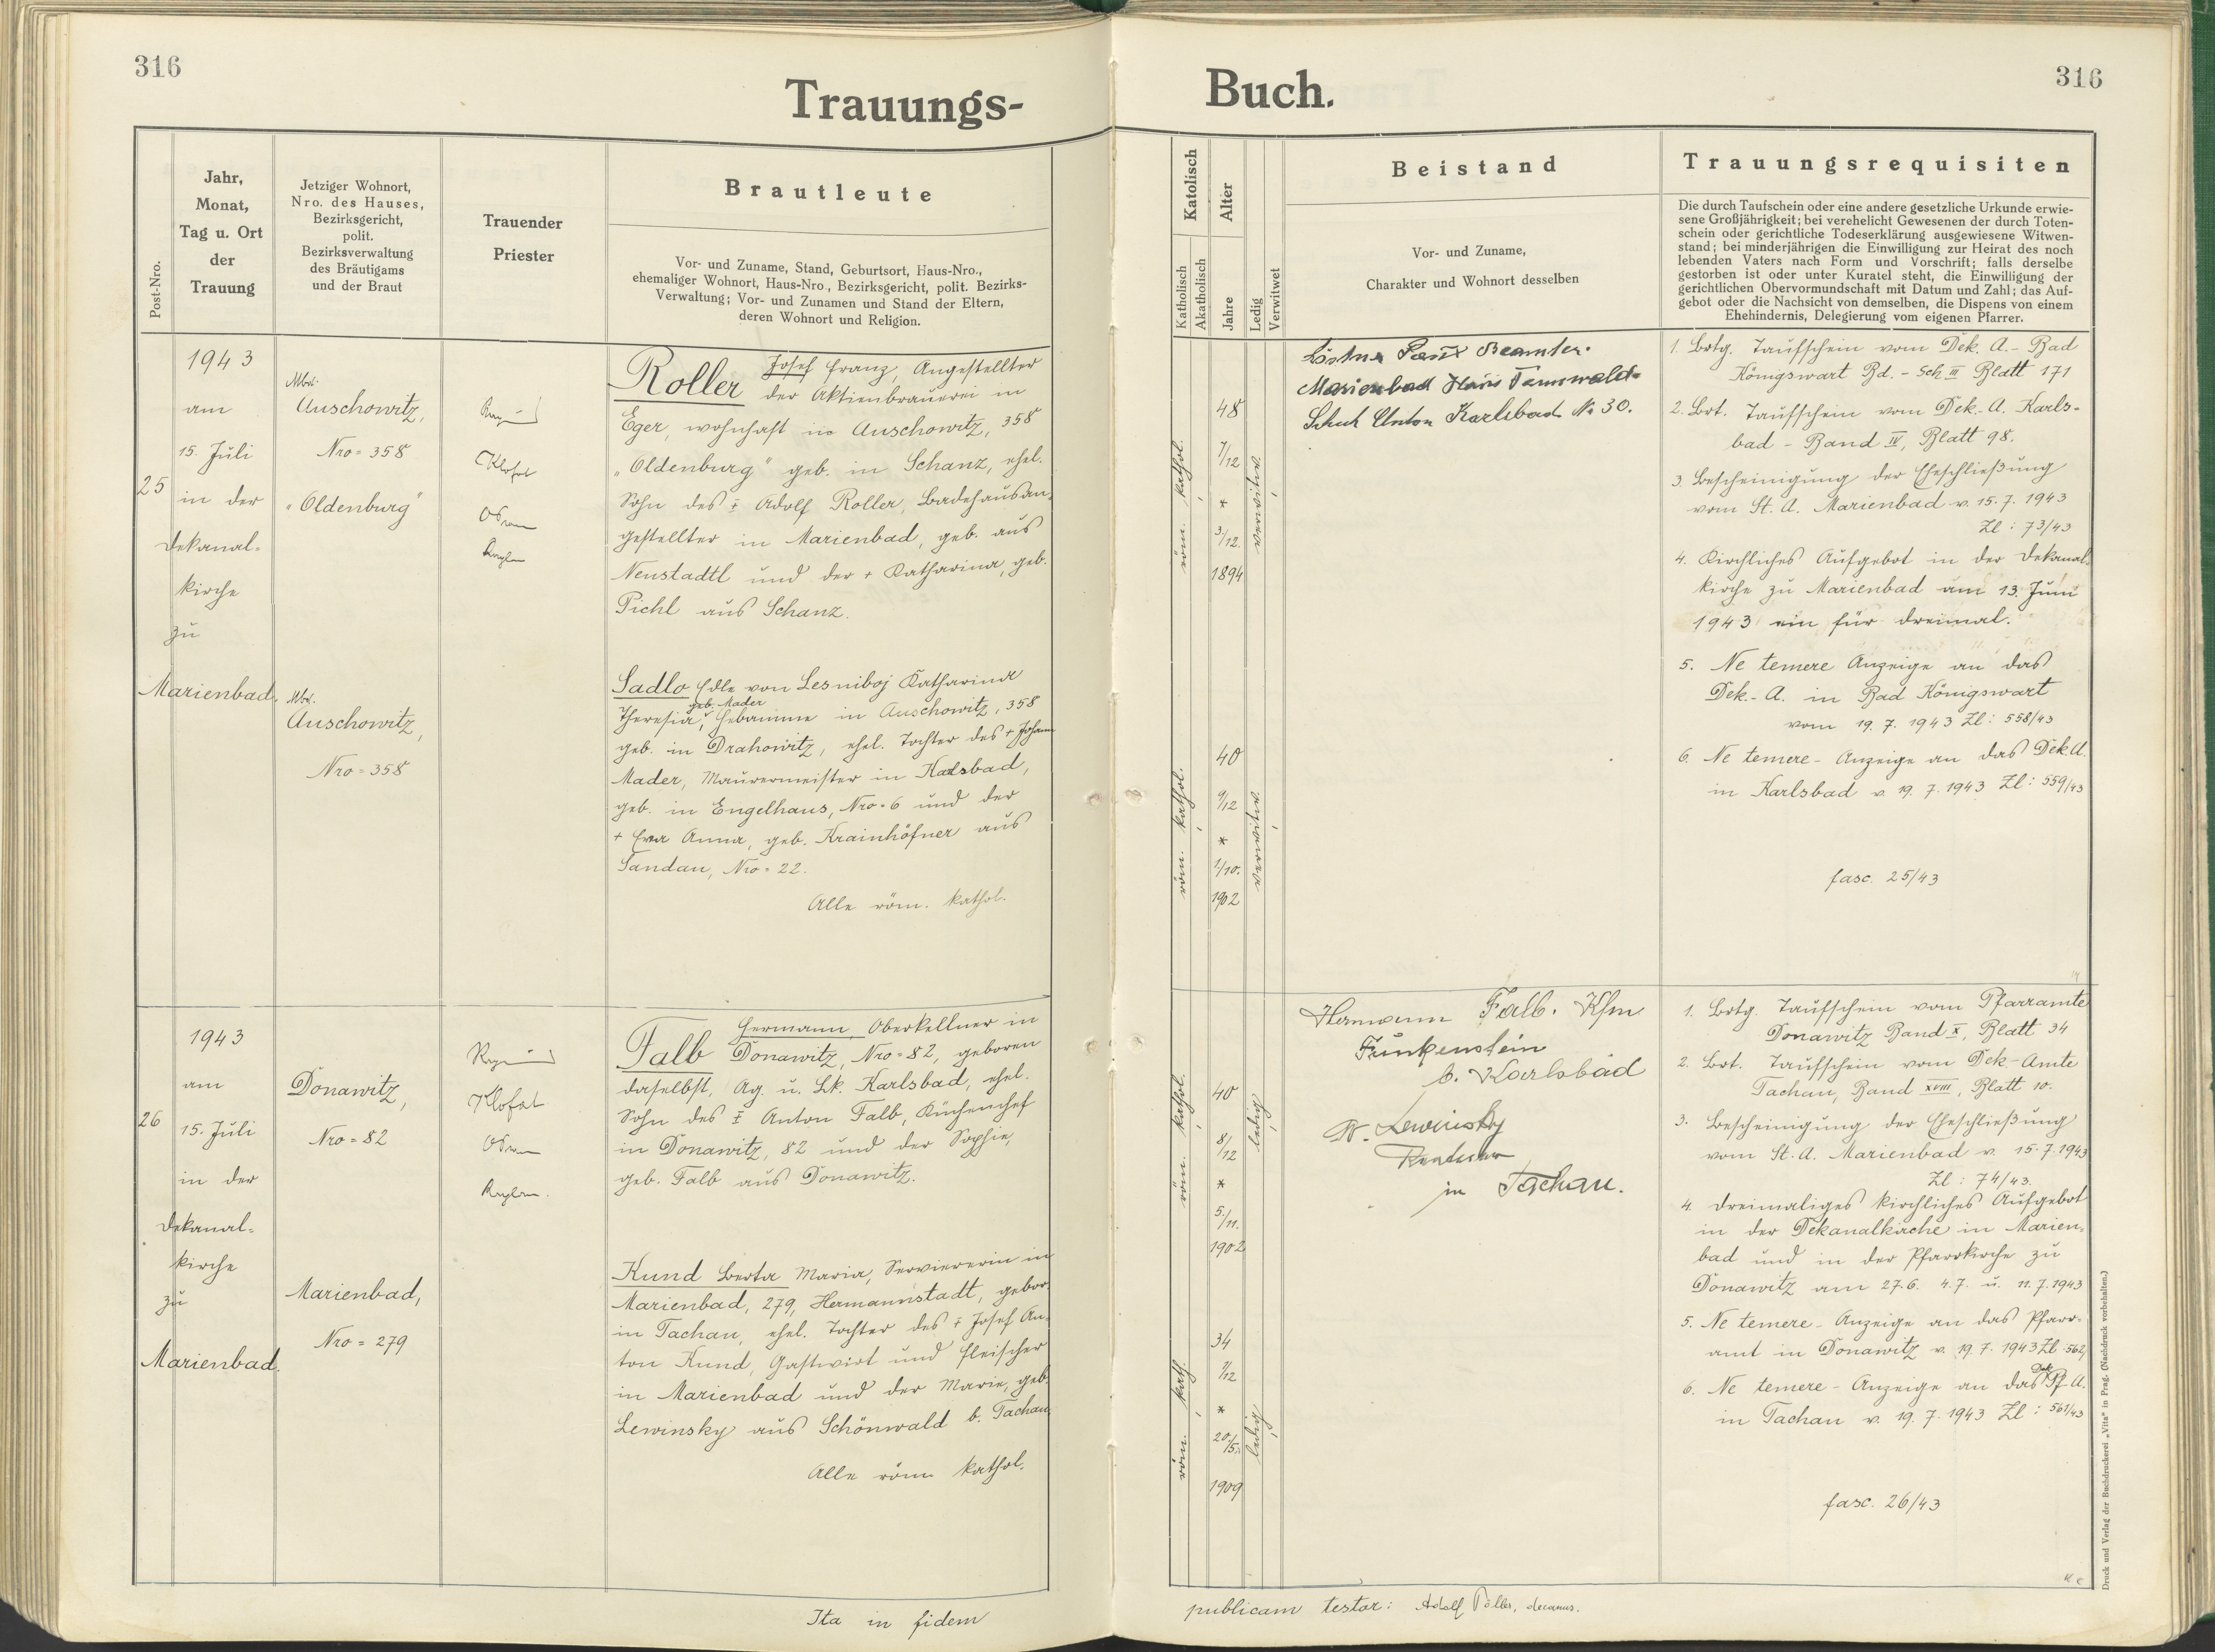 316
Trauungs-
Post-Nro.
Jahr,
Monat,
Tag u. Ort
der
Trauung
Jetziger Wohnort,
Nro. des Hauses,
Bezirksgericht,
polit.
Bezirksverwaltung
des Bräutigams
und der Braut
Trauender
Priester
Brautleute
Vor- und Zuname, Stand, Geburtsort, Haus-Nro.,
ehemaliger Wohnort, Haus-Nro., Bezirksgericht, polit. Bezirks-
Verwaltung; Vor- und Zunamen und Stand der Eltern,
deren Wohnort und Religion.
25
1943
am
15. Juli
in der
Dekanal-
kirche
zu
Marienbad.
Auschowitz,
Nro = 358
"Oldenburg"
Auschowitz,
Nro = 358
Klofat
Roller Josef Franz, Angestellter
der Aktienbrauerei in
Eger, wohnhaft in Auschowitz, 358
"Oldenburg" geb. in Schanz, ehel.
Sohn des + Adolf Roller, Badehausan-
gestellter in Marienbad, geb. aus
Neustadtl und der + Katharina, geb.
Pichl aus Schanz.
Sadlo Edle von Lesniboj Katharina
geb. Mader
Theresia, Hebamme in Auschowitz, 358
geb. in Drahowitz, ehel. Tochter des + Johann
Mader, Maurermeister in Karlsbad,
geb. in Engelhaus, Nro = 6 und der
+ Eva Anna, geb. Krainhöfner aus
Sandau, Nro = 22.
Alle röm. kathol.
26
1943
am
15. Juli
in der
Dekanal-
kirche
zu
Marienbad.
Donawitz,
Nro = 82
Marienbad,
Nro = 279
Klofat
Falb Hermann, Oberkellner in
Donawitz, Nro = 82, geboren
daselbst, Ag. u. Lk. Karlsbad, ehel.
Sohn des + Anton Falb, Küchenchef
in Donawitz, 82 und der Sophie,
geb. Falb aus Donawitz.
Kund Berta Maria, Serviererin in
Marienbad, 279, Hermannstadt, gebor.
in Tachau, ehel. Tochter des + Josef An-
ton Kund, Gastwirt und Fleischer
in Marienbad und der Marie, geb.
Lewinsky aus Schönwald b. Tachau
Alle röm. kathol.
Ita in fidem
316
Buch.
Katolisch
Katholisch
Akatholisch
Alter
Jahre
Ledig
Verwitwet
Beistand
Vor- und Zuname,
Charakter und Wohnort desselben
Trauungsrequisiten
Die durch Taufschein oder eine andere gesetzliche Urkunde erwie-
sene Großjährigkeit; bei verehelicht Gewesenen der durch Toten-
schein oder gerichtliche Todeserklärung ausgewiesene Witwen-
stand; bei minderjährigen die Einwilligung zur Heirat des noch
lebenden Vaters nach Form und Vorschrift; falls derselbe
gestorben ist oder unter Kuratel steht, die Einwilligung der
gerichtlichen Obervormundschaft mit Datum und Zahl; das Auf-
gebot oder die Nachsicht von demselben, die Dispens von einem
Ehehindernis, Delegierung vom eigenen Pfarrer.
röm. kathol.
48
7/12
*
3/12.
1894
verwitwet
röm. kathol.
40
9/12
*
1/10.
1902
verwitwet
Beamter.
Marienbad Haus Tannwald
Anton Karlsbad No 30.
1. Brtg. Taufschein vom Dek. A. - Bad
Königswart Bd. - Sch III Blatt 171
2. Brt. Taufschein vom Dek.-A. Karls-
bad - Band IV, Blatt 98.
3. Bescheinigung der Eheschließung
vom St. A. Marienbad v. 15. 7. 1943
Zl : 73/43
4. Kirchliches Aufgebot in der Dekanal-
kirche zu Marienbad am 13. Juni
1943 ein für dreimal.
5. Ne temere Anzeige an das
Dek.-A. in Bad Königswart
vom 19. 7. 1943 Zl : 558/43
6. Ne temere - Anzeige an das Dek A.
in Karlsbad v. 19. 7. 1943 Zl : 559/43
fasc. 25/43
röm. kathol.
40
8/12
*
5./11.
1902
ledig
röm. kath.
34
1/12
*
20./5.
1909
ledig
Hermann Falb. Kfm
Funkenstein
b. Karlsbad
R. Lewinsky
Rentner
in Tachau.
1. Brtg. Taufschein vom Pfarramte
Donawitz Band X, Blatt 34
2. Brt. Taufschein vom Dek-Amte
Tachau, Band XVIII, Blatt 10.
3. Bescheinigung der Eheschließung
vom St. A. Marienbad v. 15. 7. 1943
Zl : 74/43.
4. Dreimaliges kirchliches Aufgebot
in der Dekanalkirche in Marien-
bad und in der Pfarrkirche zu
Donawitz am 27.6. 4.7. u. 11.7.1943
5. Ne temere - Anzeige an das Pfarr-
amt in Donawitz v. 19. 7. 1943 Zl 562/
6. Ne temere - Anzeige an das Dek A.
in Tachau v. 19. 7. 1943 Zl : 561/43
fasc. 26/43
publicam testor: Adolf decanus.
Druck und Verlag der Buchdruckerei „Vita“ in Prag. (Nachdruck vorbehalten.)